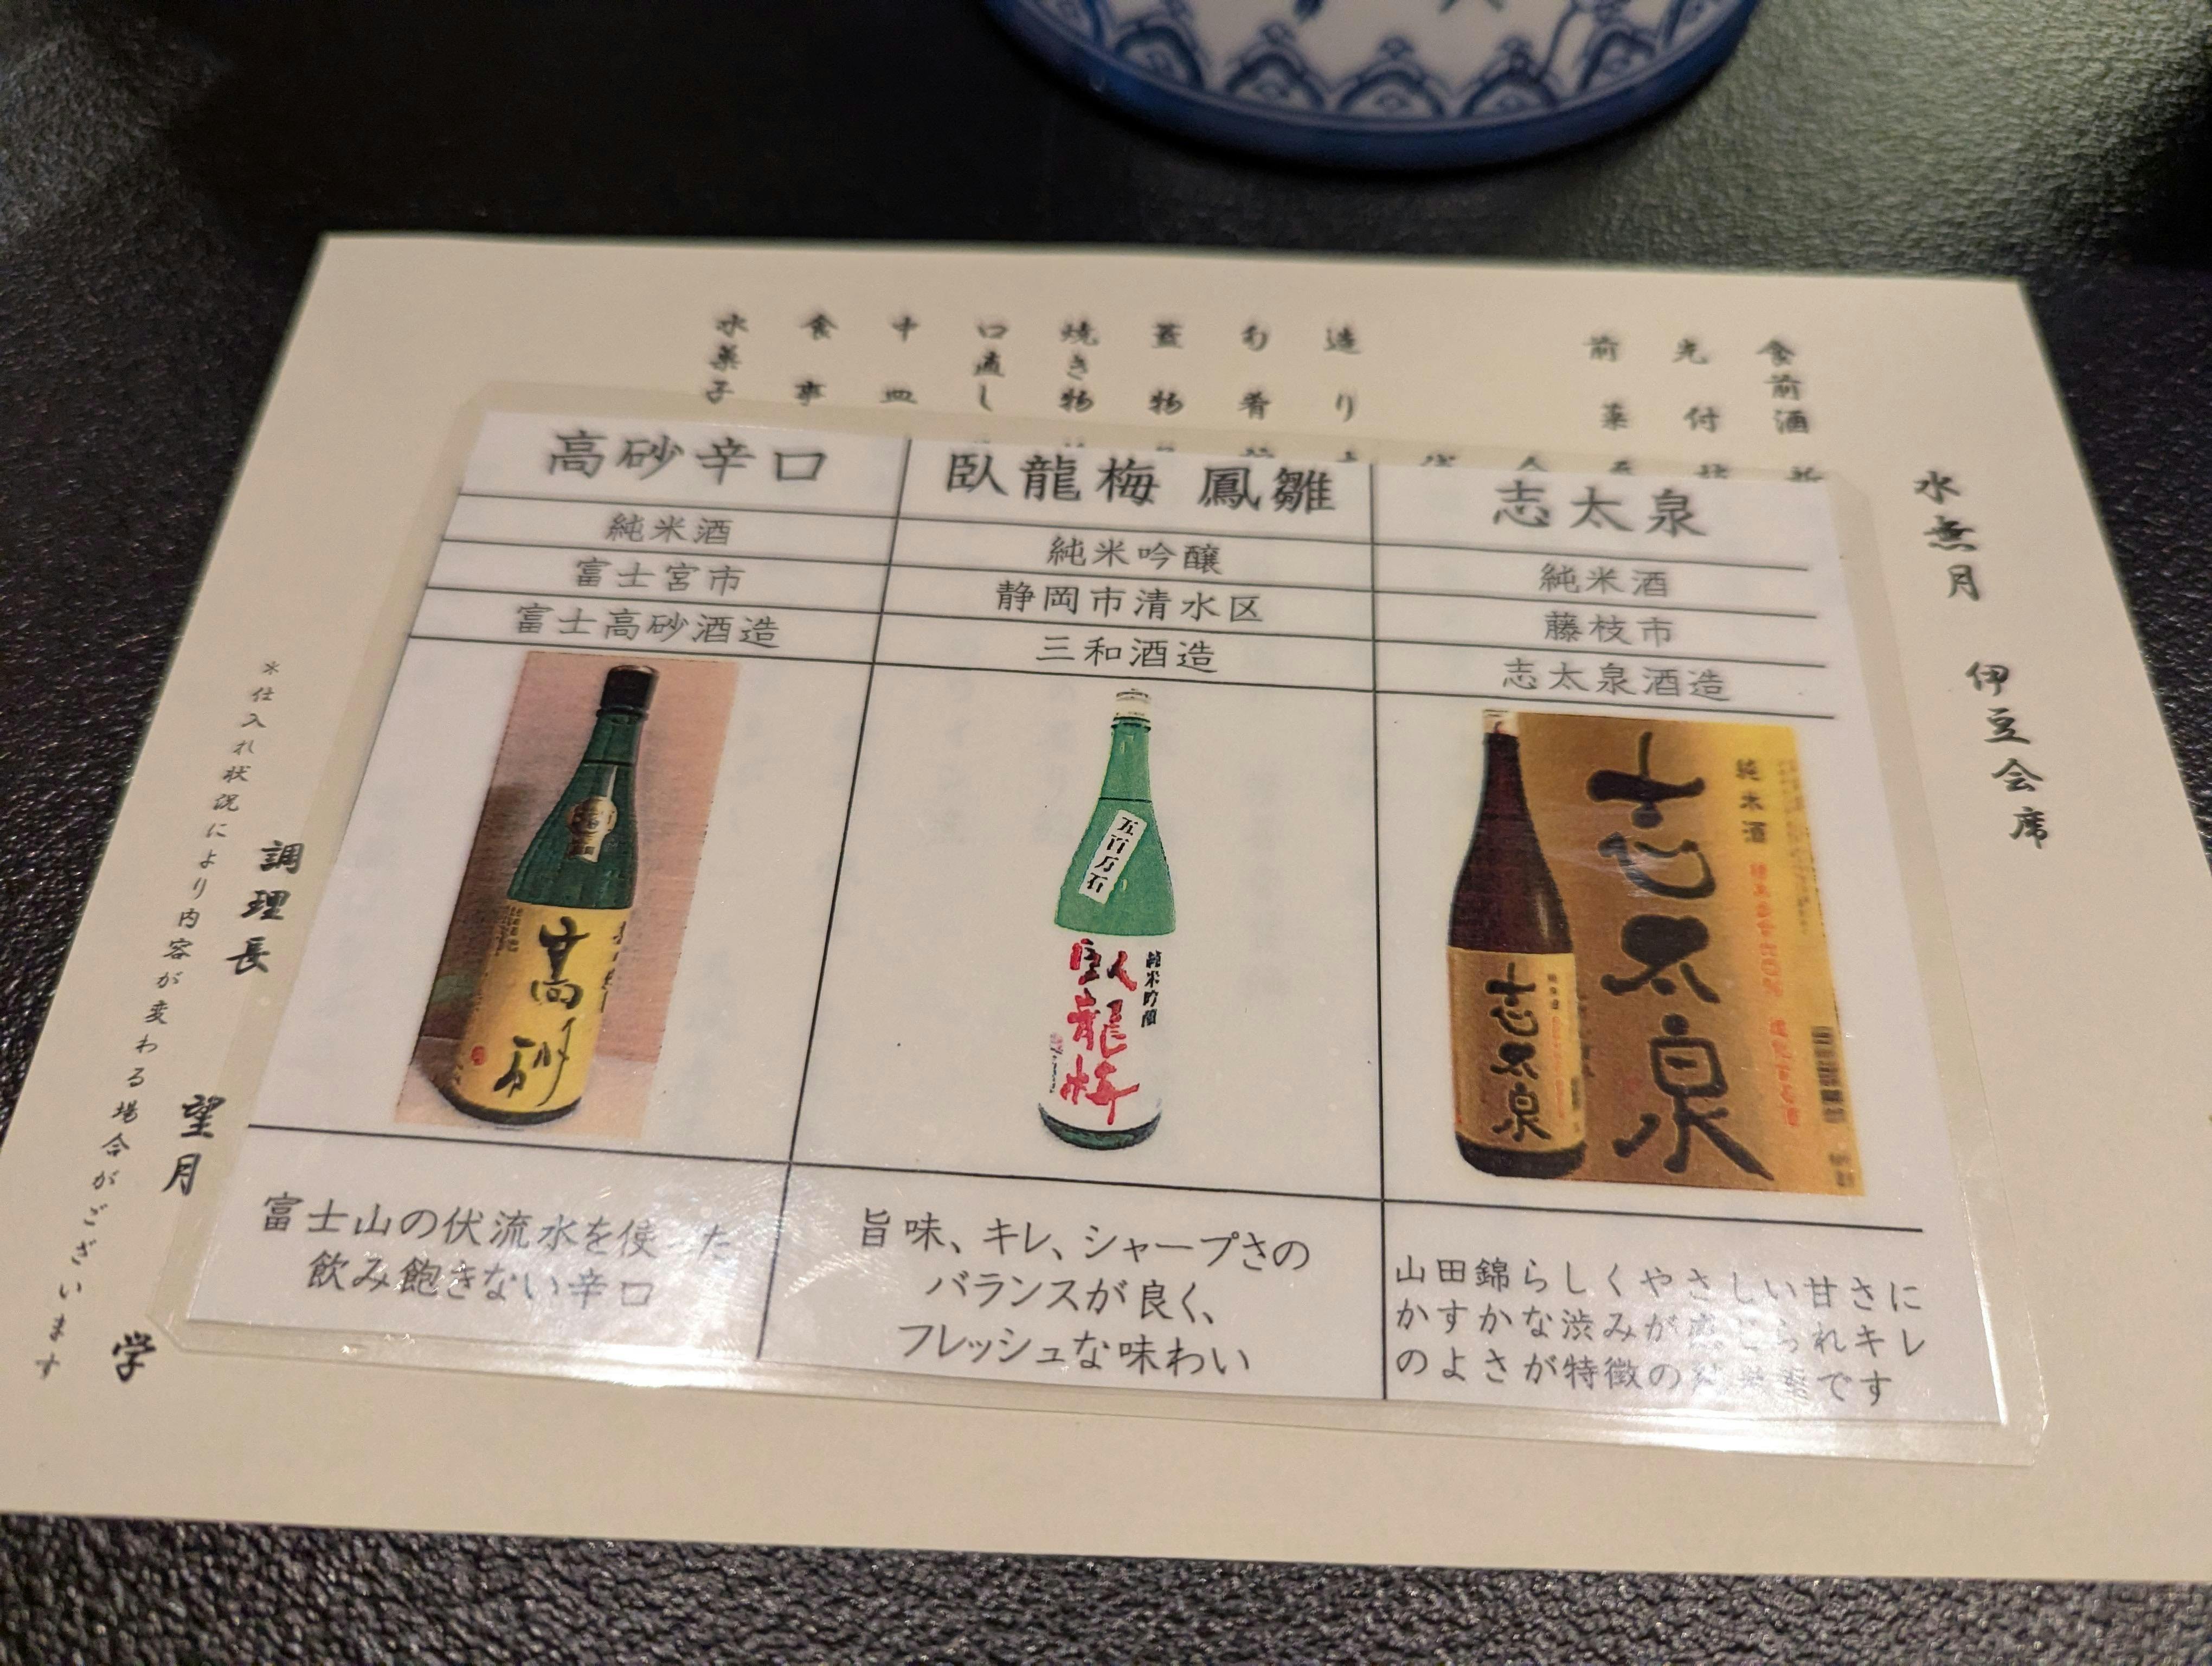 高砂辛口
純米酒
富士宮市
富士高砂酒造
高砂
富士山の伏流水を使った
飲み飽きない辛口
臥龍梅 鳳雛
純米吟醸
静岡市清水区
三和酒造
五百万石
純米吟醸
臥龍梅
旨味、キレ、シャープさの
バランスが良く、
フレッシュな味わい
志太泉
純米酒
藤枝市
志太泉酒造
志太泉
純米酒
志太泉
山田錦らしくやさしい甘さに
かすかな渋みが感じられキレ
のよさが特徴のです
水無月 伊豆会席
食前酒
先付
前菜
造り
旬肴
蓋物
焼き物
口直し
中皿
食事
水菓子
調理長 望月 学
※仕入れ状況により内容が変わる場合がございます